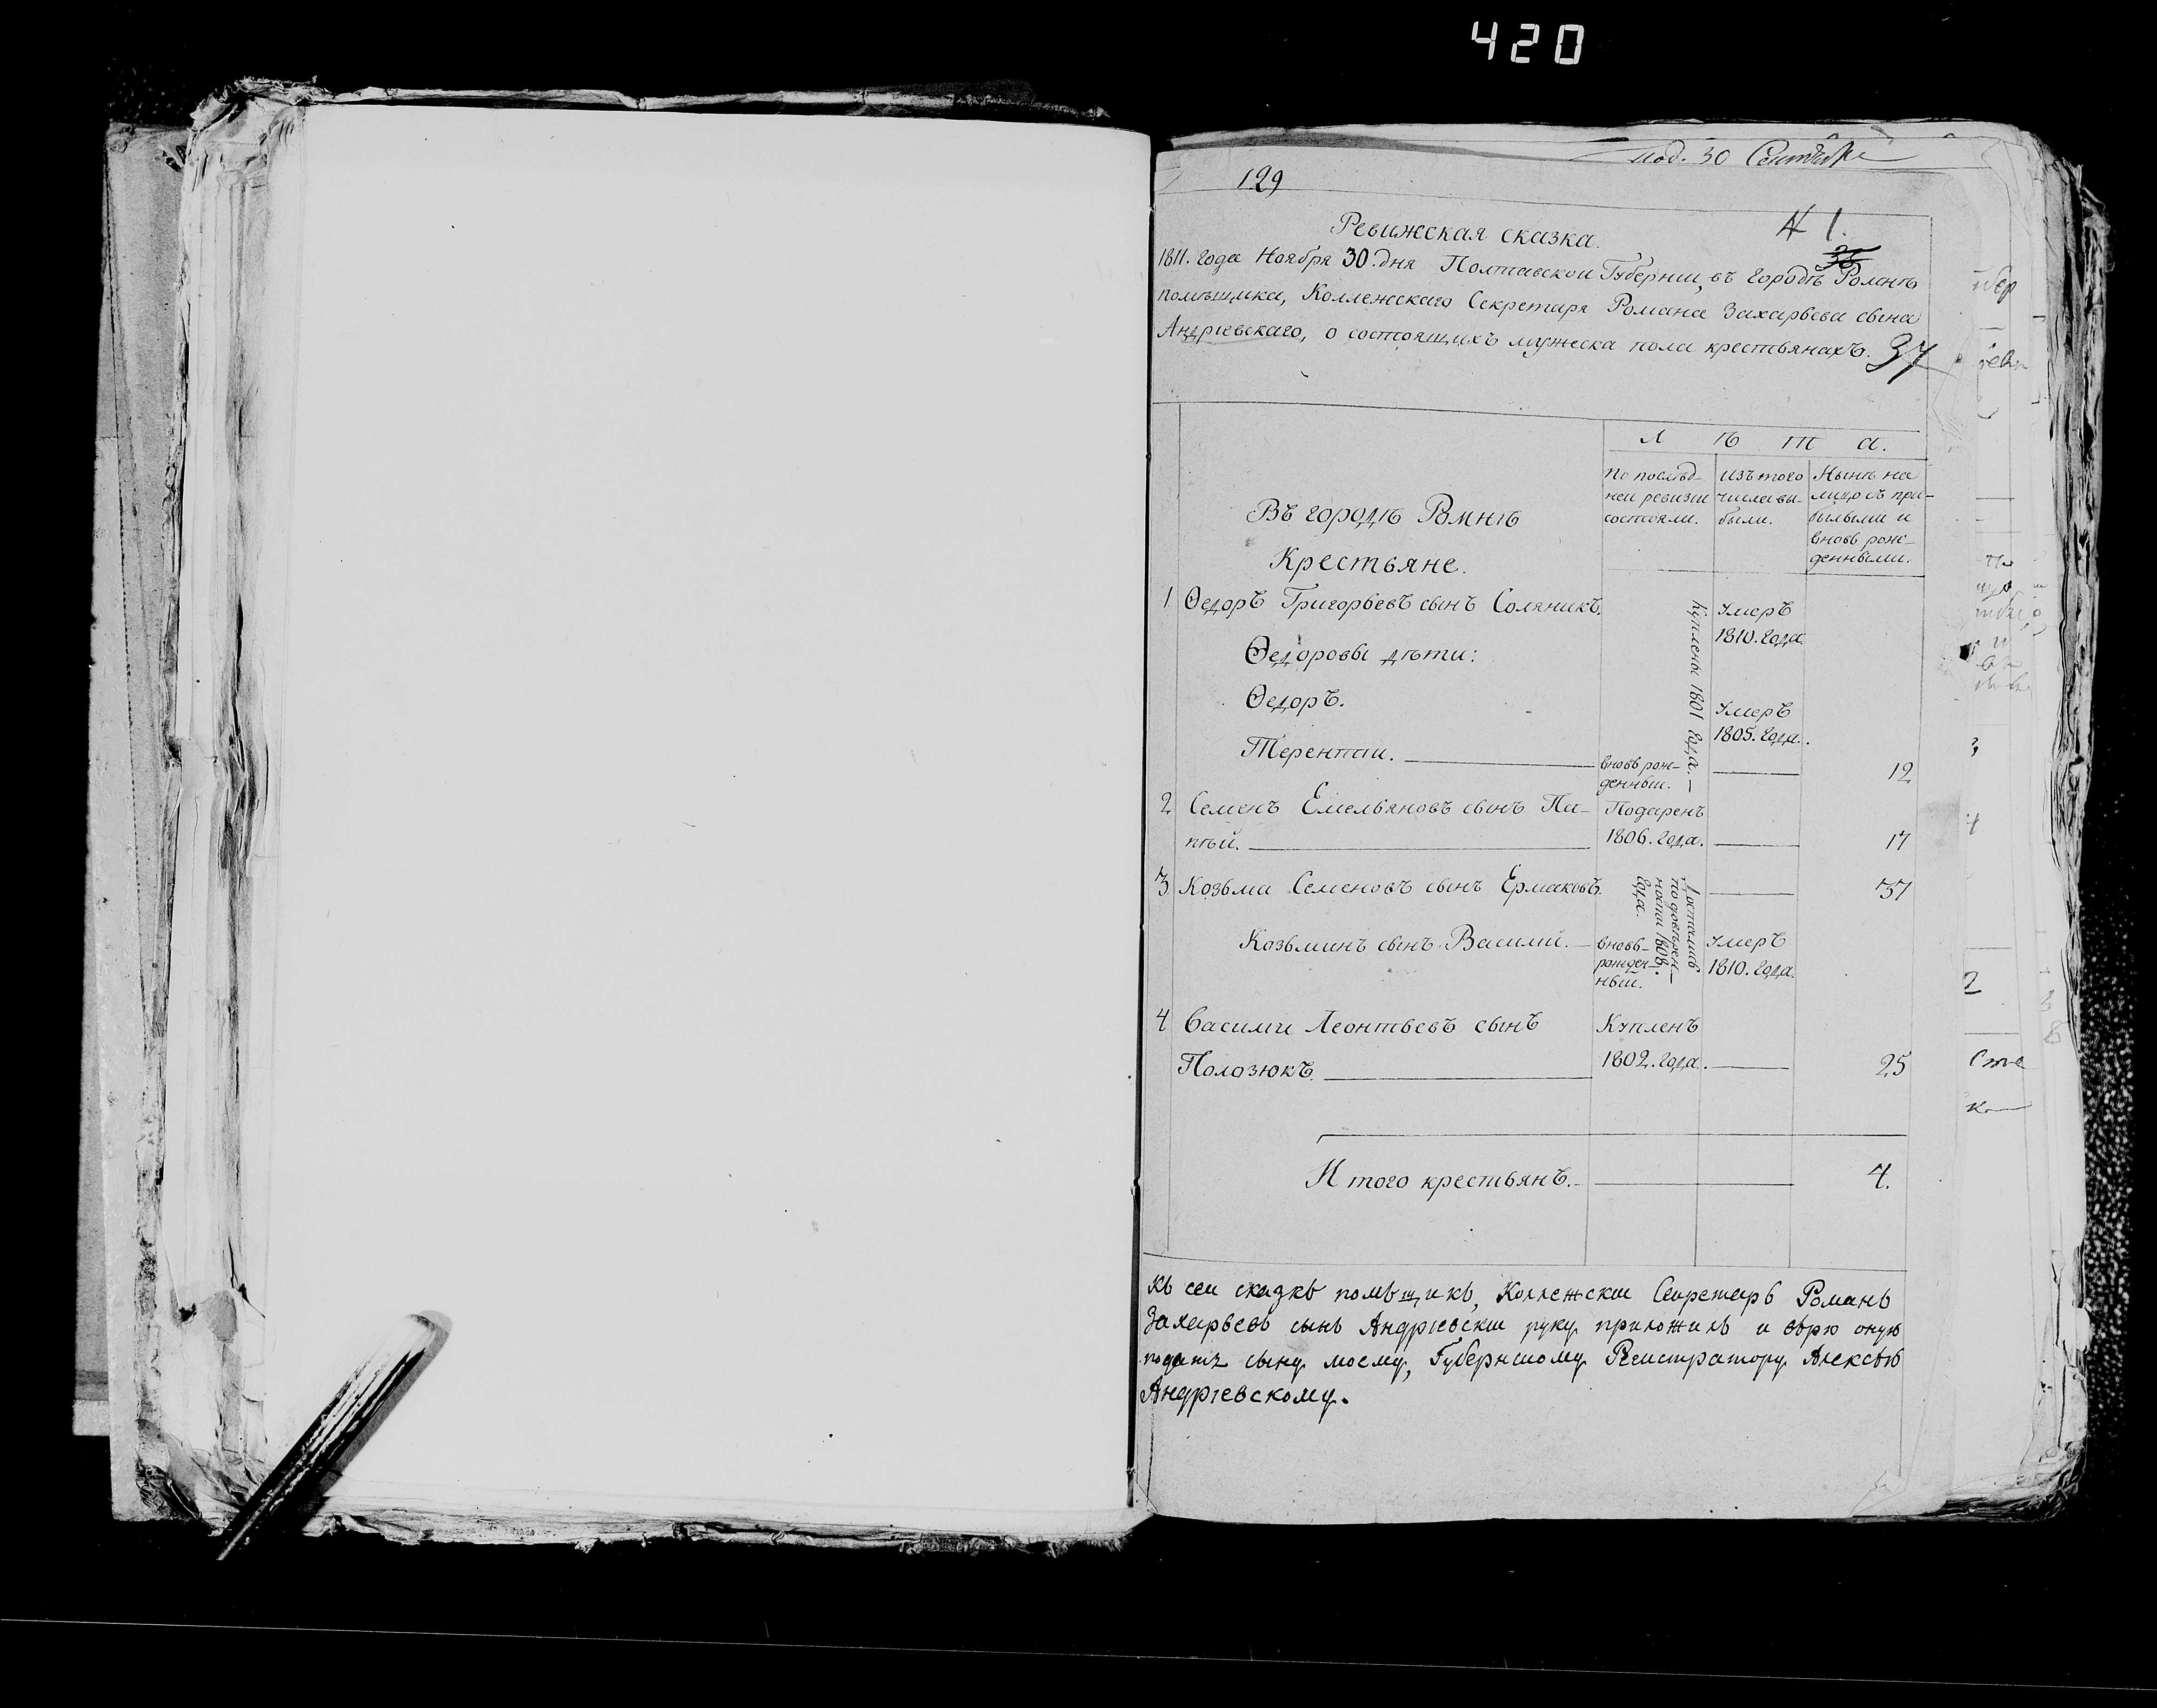 420
под. 30 Сентября
129
№ 1.
Ревижская сказка.
36
1811. года Ноября 30. дня Полтавской Губернии, въ городѣ Ромнѣ
помѣщика, Коллежскаго Секретаря Романа Захарьева сына
Андрıевскаго, о состоящихъ мужеска пола крестьянахъ.
37
Л ѣ т а.
По послѣд-
ней ревизии
состояли.
Изъ того
числа вы-
были.
Нынѣ на
лицо съ при-
былыми и
вновь рож-
денными.
Въ городѣ Ромнѣ
Крестьяне.
1 Ѳедоръ Григорьевъ сынъ Соляникъ.
Куплены 1801 года.
Умеръ
1810. года
Ѳедоровы дѣти:
Ѳедоръ.
Умеръ
1805. года.
Терентии.
вновь рож-
денный.
12
2 Семенъ Емельяновъ сынъ Па-
Подаренъ
1806. года.
17
3 Козьма Семеновъ сынъ Ермаковъ.
1808.
года.
37
Козьминъ сынъ Василии.
вновь-
рожден-
ный.
Умеръ
1810. года.
4 Василии Леонтьевъ сынъ
Полозюкъ.
Купленъ
1802. года.
25
Итого крестьянъ.
4.
Къ сеи сказкѣ помѣщикъ, Коллежскии Секретарь Романъ
Захарьевъ сынъ Андрıевскии руку приложилъ и вѣрю оную
подать сыну моему, Губернскому Регистратору Алексѣю
Андрıевскому.